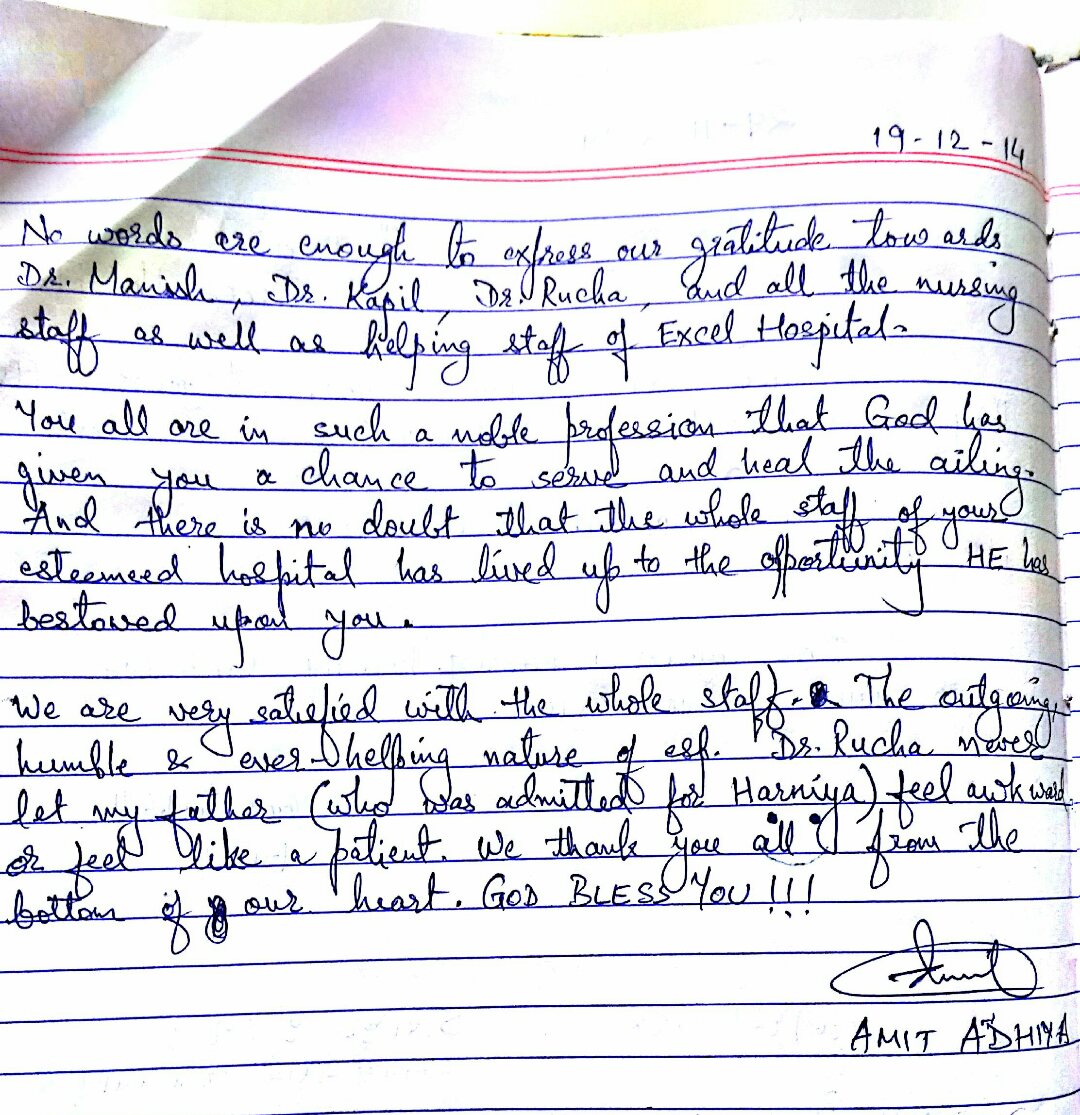 19-12-14
No words are enough to express our gratitude towards
Dr. Manish, Dr. Kapil, Dr. Rucha, and all the nursing
staff as well as helping staff of Excel Hospital.
You all are in such a noble profession that God has
given you a chance to serve and heal the ailing.
And there is no doubt that the whole staff of your
esteemeed hospital has lived up to the opportunity HE has
bestowed upon you.
We are very satisfied with the whole staff. The outgoing,
humble & ever-helping nature of esp. Dr. Rucha never
let my father (who was admitted for Harniya) feel awkward
or feel like a patient. We thank you all from the
bottom of our heart. GOD BLESS YOU !!!
Amit
AMIT ADHIYA